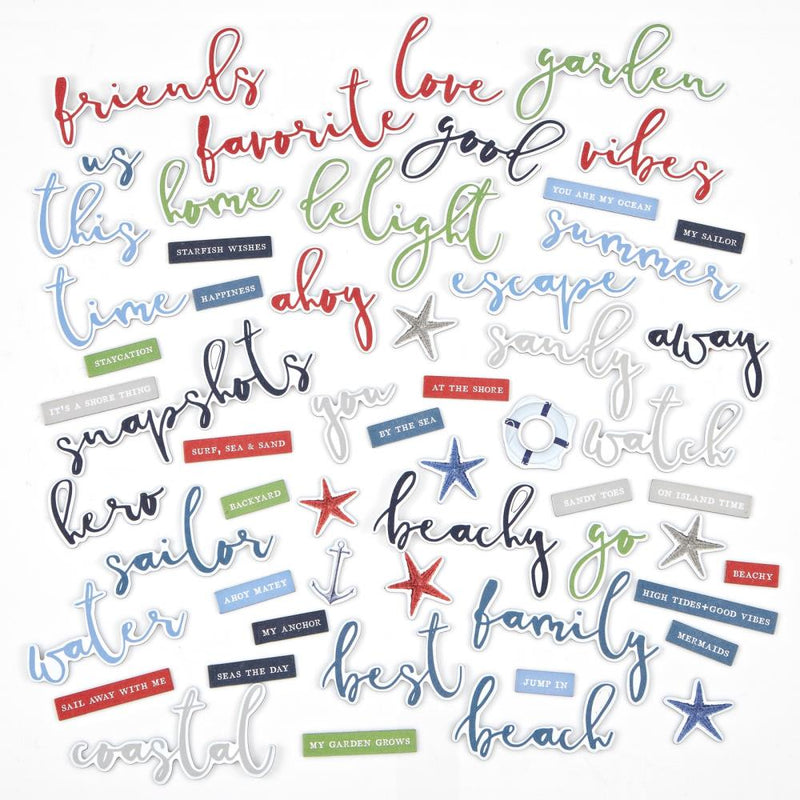 friends
love
garden
favorite
good
vibes
us
this
home
delight
YOU ARE MY OCEAN
MY SAILOR
STARFISH WISHES
summer
time
HAPPINESS
ahoy
escape
STAYCATION
sandy
away
IT'S A SHORE THING
snapshots
you
AT THE SHORE
BY THE SEA
watch
SURF, SEA & SAND
hero
BACKYARD
SANDY TOES
ON ISLAND TIME
sailor
beachy
go
BEACHY
AHOY MATEY
HIGH TIDES+GOOD VIBES
water
MY ANCHOR
family
MERMAIDS
SEAS THE DAY
best
JUMP IN
SAIL AWAY WITH ME
coastal
MY GARDEN GROWS
beach